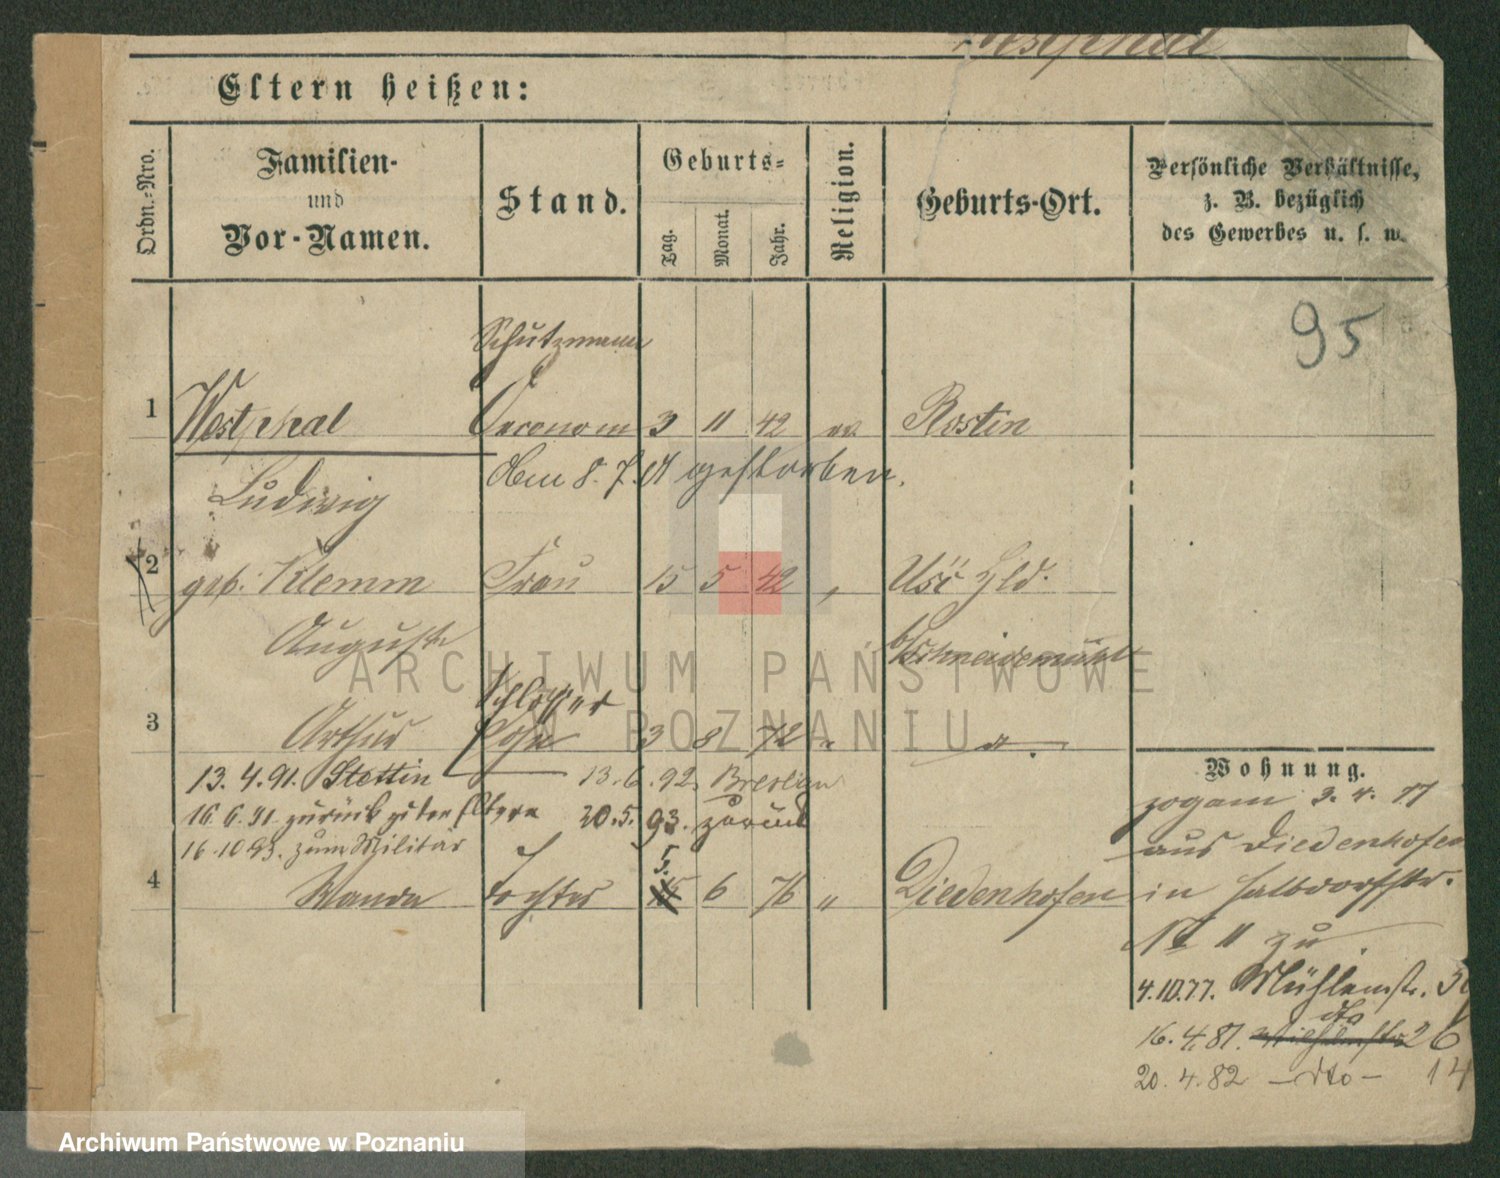 Westphal
Eltern heißen:
Ordn.-Nro.
Familien-
und
Vor-Namen.
Stand.
Geburts-
Tag.
Monat.
Jahr.
Religion.
Geburts-Ort.
Persönliche Verhältnisse,
z. B. bezüglich
des Gewerbes u. s. w.
95
Schutzmann
1 Westphal Oeconom 3 11 42 ev. Rostin
gestorben.
Ludwig
2 geb. Klemm Frau 15 5 42 „
Auguste
Schneidemühl
Schlosser
3 Arthur Sohn 3 8 72 „ „
13.4.91. Stettin 13.6.92. Breslau
16.6.91. zurück zu den Eltern 20.5.93. zurück
16.10.93. zum Militär
5.
4 Wanda Tochter 6 76 „ Diedenhofen
Wohnung.
zogam 3.4.77
aus Diedenhofen
in Halbdorfstr.
No 11 zu.
4.10.77. Mühlenstr.
dto
16.4.81. 26
20.4.82 – dto – 14
ARCHIWUM PAŃSTWOWE
W POZNANIU
Archiwum Państwowe w Poznaniu